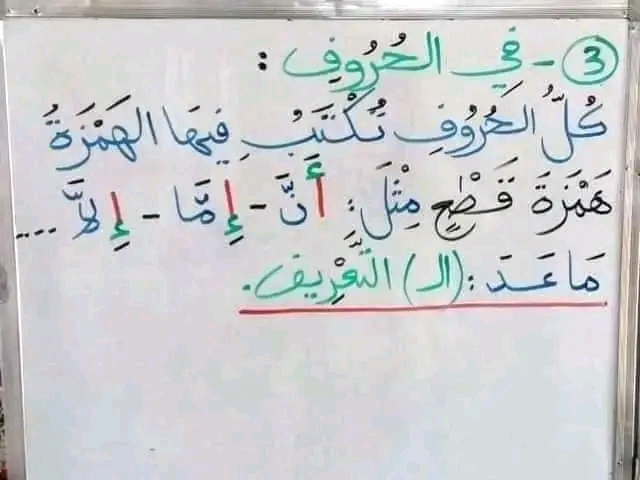 3 - في الحُرُوفِ :
كُلُّ الحُرُوفِ تُكْتَبُ فِيهَا الهَمْزَةُ
هَمْزَةَ قَطْعٍ مِثْلَ: أَنَّ - إِمَّا - إِلاَّ ...
مَا عَدَ : (الـ) التَّعْرِيفِ.